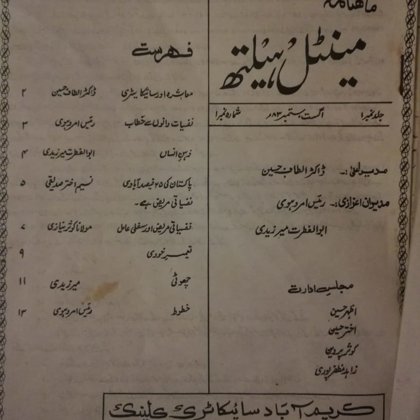 ماہنامہ
مینٹل ہیلتھ
جلد نمبر ۱ اگست، ستمبر ۸۳ء شمارہ نمبر ۱
مدیر اعلیٰ :۔ ڈاکٹر الطاف حسین
مدیران اعزازی :۔ رئیس امروہوی
ابوالفطرت میر زیدی
مجلس ادارت
اظہر حسین
اختر حسین
کوثر پروین
زاہد مظفر پوری
فہرست
معاشرہ اور سائیکاٹری ڈاکٹر الطاف حسین ۲
نفسیات دانوں سے خطاب رئیس امروہوی ۳
ذہن انساں ابوالفطرت میر زیدی ۴
پاکستان کی ۲۵ فیصد آبادی نسیم اختر صدیقی ۵
نفسیاتی مریض ہے۔
نفسیاتی مریض اور سفلی عامل مولانا کوثر نیازی ۷
تعمیر خودی ۹
چھوٹی میر زیدی ۱۱
خطوط رئیس امروہوی ۱۳
کریم آباد سائیکاٹرک کلینک